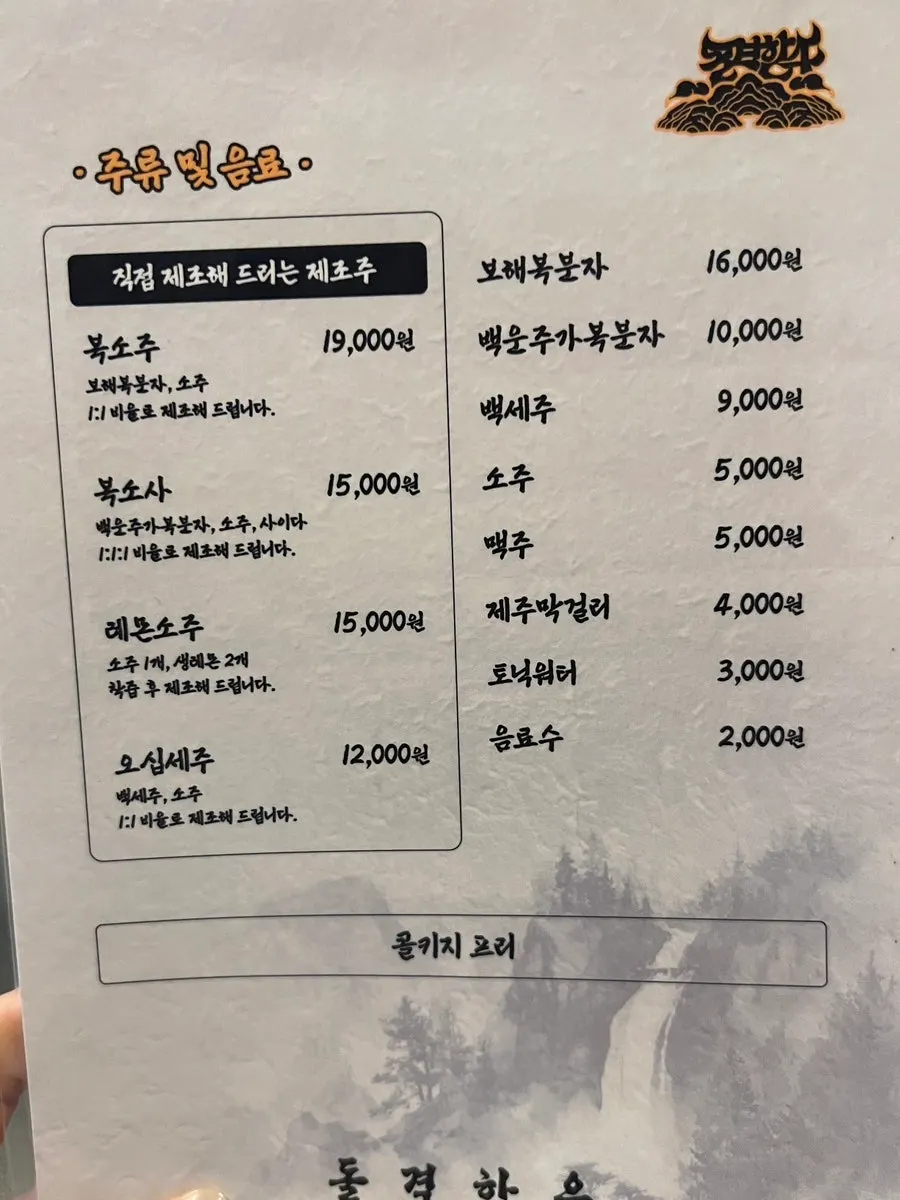 돌격한우
· 주류 및 음료 ·
직접 제조해 드리는 제조주
복소주 19,000원
보해복분자, 소주
1:1 비율로 제조해 드립니다.
복소사 15,000원
백운주가복분자, 소주, 사이다
1:1:1 비율로 제조해 드립니다.
레몬소주 15,000원
소주 1개, 생레몬 2개
착즙 후 제조해 드립니다.
오십세주 12,000원
백세주, 소주
1:1 비율로 제조해 드립니다.
보해복분자 16,000원
백운주가복분자 10,000원
백세주 9,000원
소주 5,000원
맥주 5,000원
제주막걸리 4,000원
토닉워터 3,000원
음료수 2,000원
콜키지 프리
돌격한우